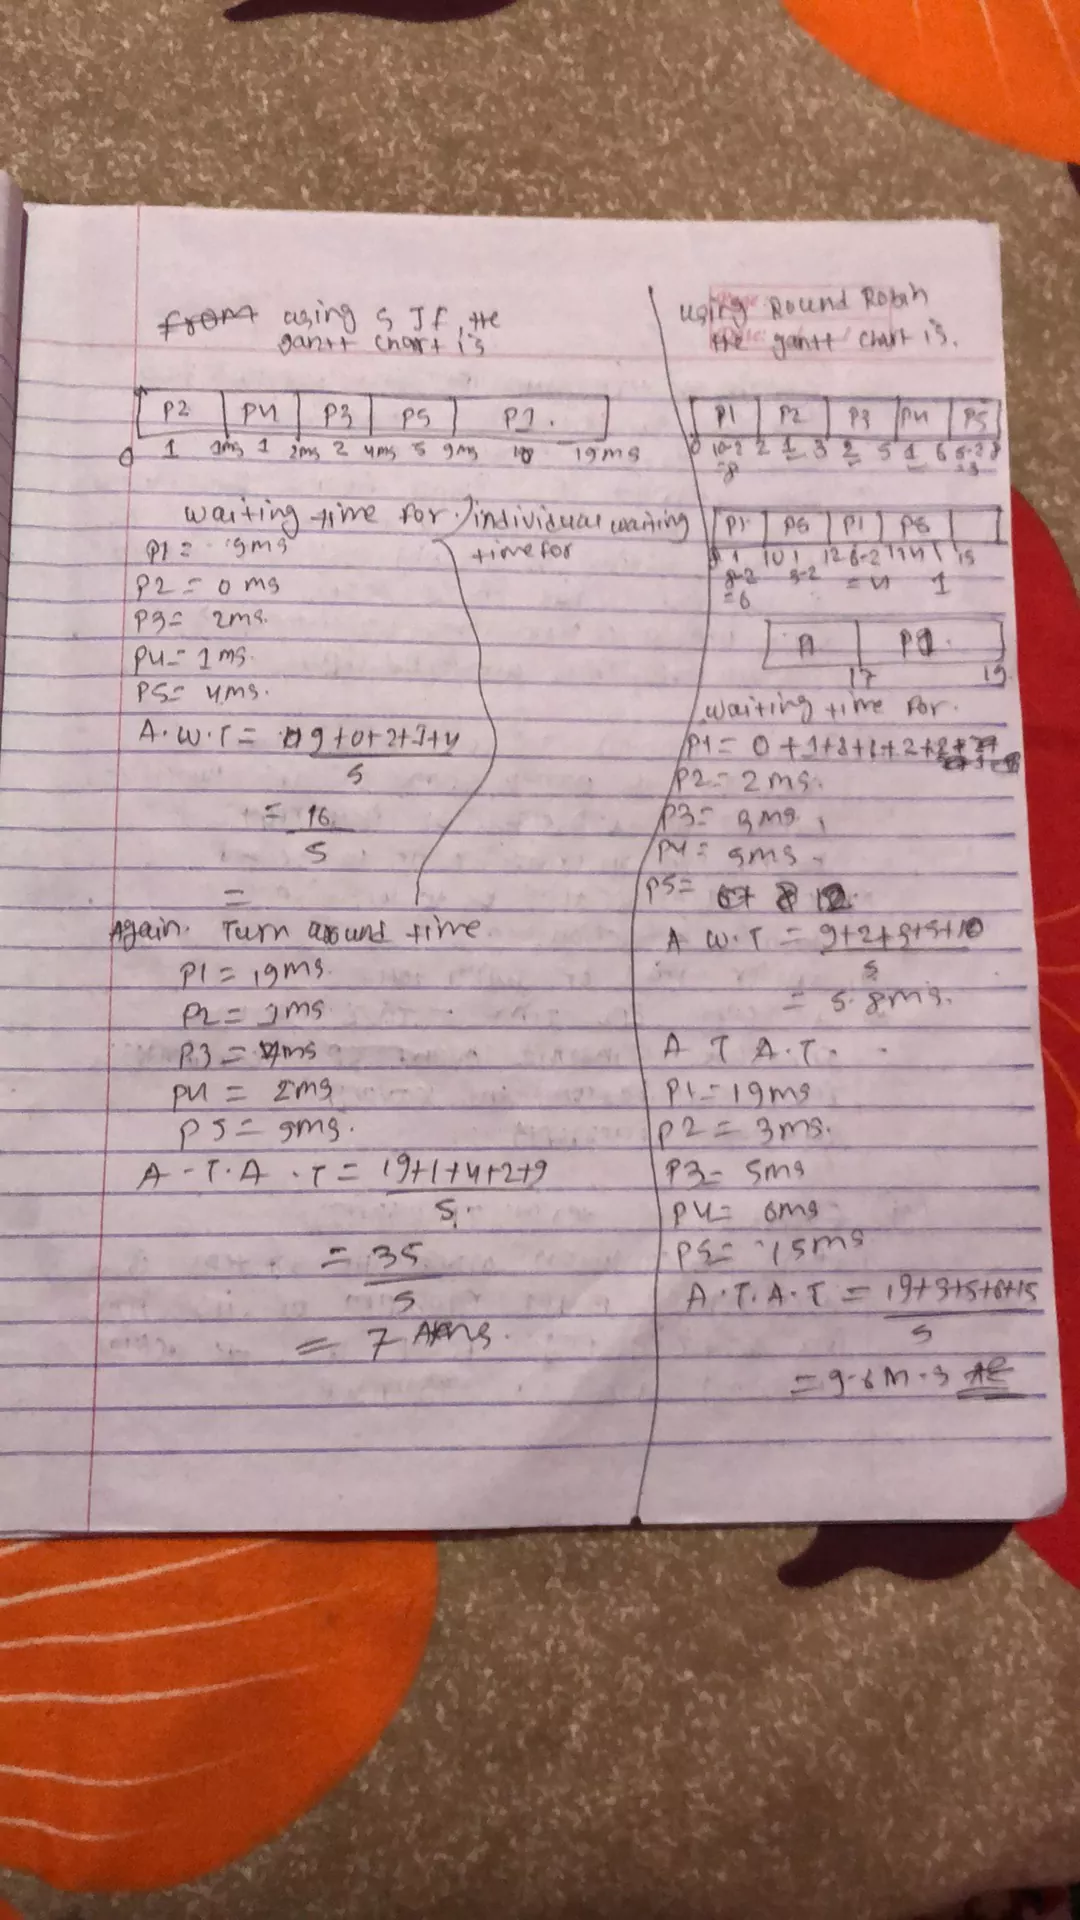 using SJF, the
gantt chart is
P2 P4 P3 P5 P1.
0 1 1ms 1 2ms 2 4ms 5 9ms 10 19ms
waiting time for / individual waiting
time for
P1 = 9ms
P2 = 0 ms
P3 = 2ms.
P4 = 1 ms.
P5 = 4ms.
A.W.T = 9+0+2+1+4
5
= 16
5
=
Again. Turn around time
P1 = 19ms.
P2 = 1ms
P3 = 4ms
P4 = 2ms
P5 = 9ms.
A.T.A.T = 19+1+4+2+9
5
= 35
5
= 7 ms.
using Round Robin
the gantt chart is.
P1 P2 P3 P4 P5
0 10-2 2 1 3 2 5 1 6 5-2 8
=8 =3
P1 P5 P1 P5
8-2 3-2 = 4 1
=6
P1
17 19
waiting time for.
P1 = 0
P2 = 2ms.
P3 = 3ms
P4 = 5ms
P5 =
A W.T =
5
= 5.8ms.
A T A.T.
P1 = 19ms
P2 = 3ms.
P3 = 5ms
P4 = 6ms
P5 = 15ms
A.T.A.T = 19+3+5+6+15
5
= 9.6 m.s